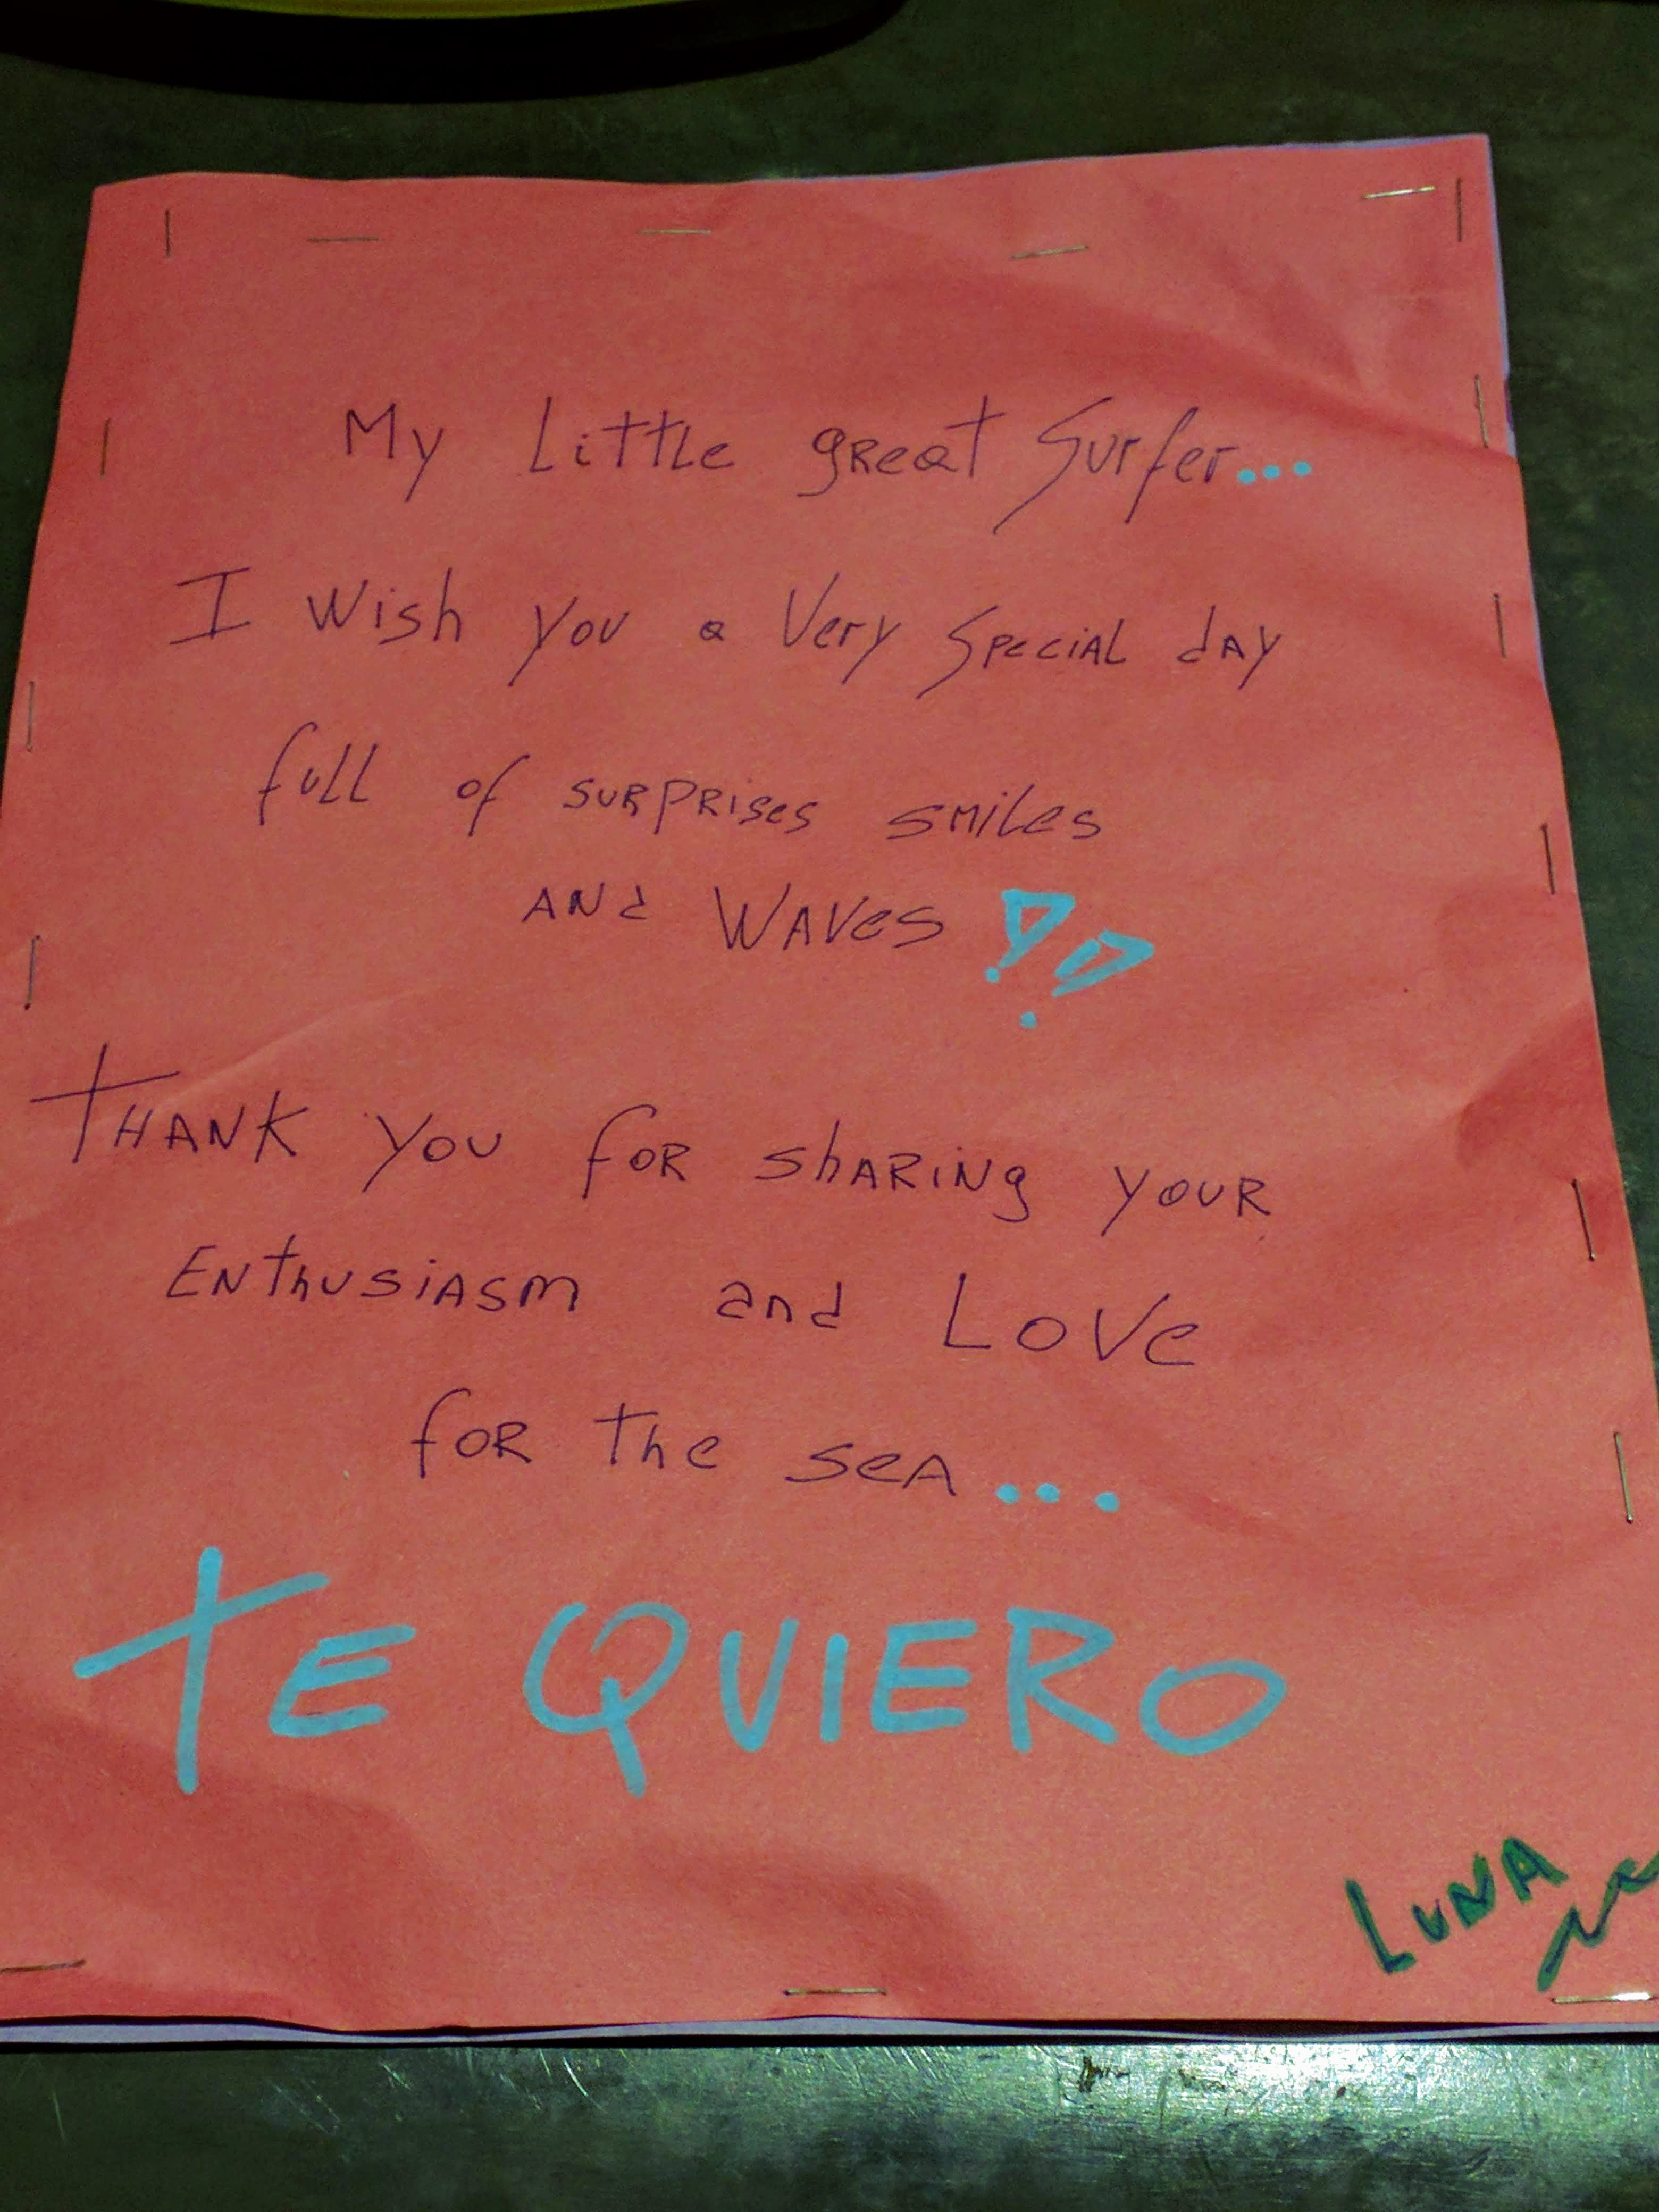 My Little great Surfer...
I Wish you a Very Special day
full of surprises smiles
and Waves !!
Thank you for sharing your
Enthusiasm and Love
for the sea...
TE QUIERO
LUNA